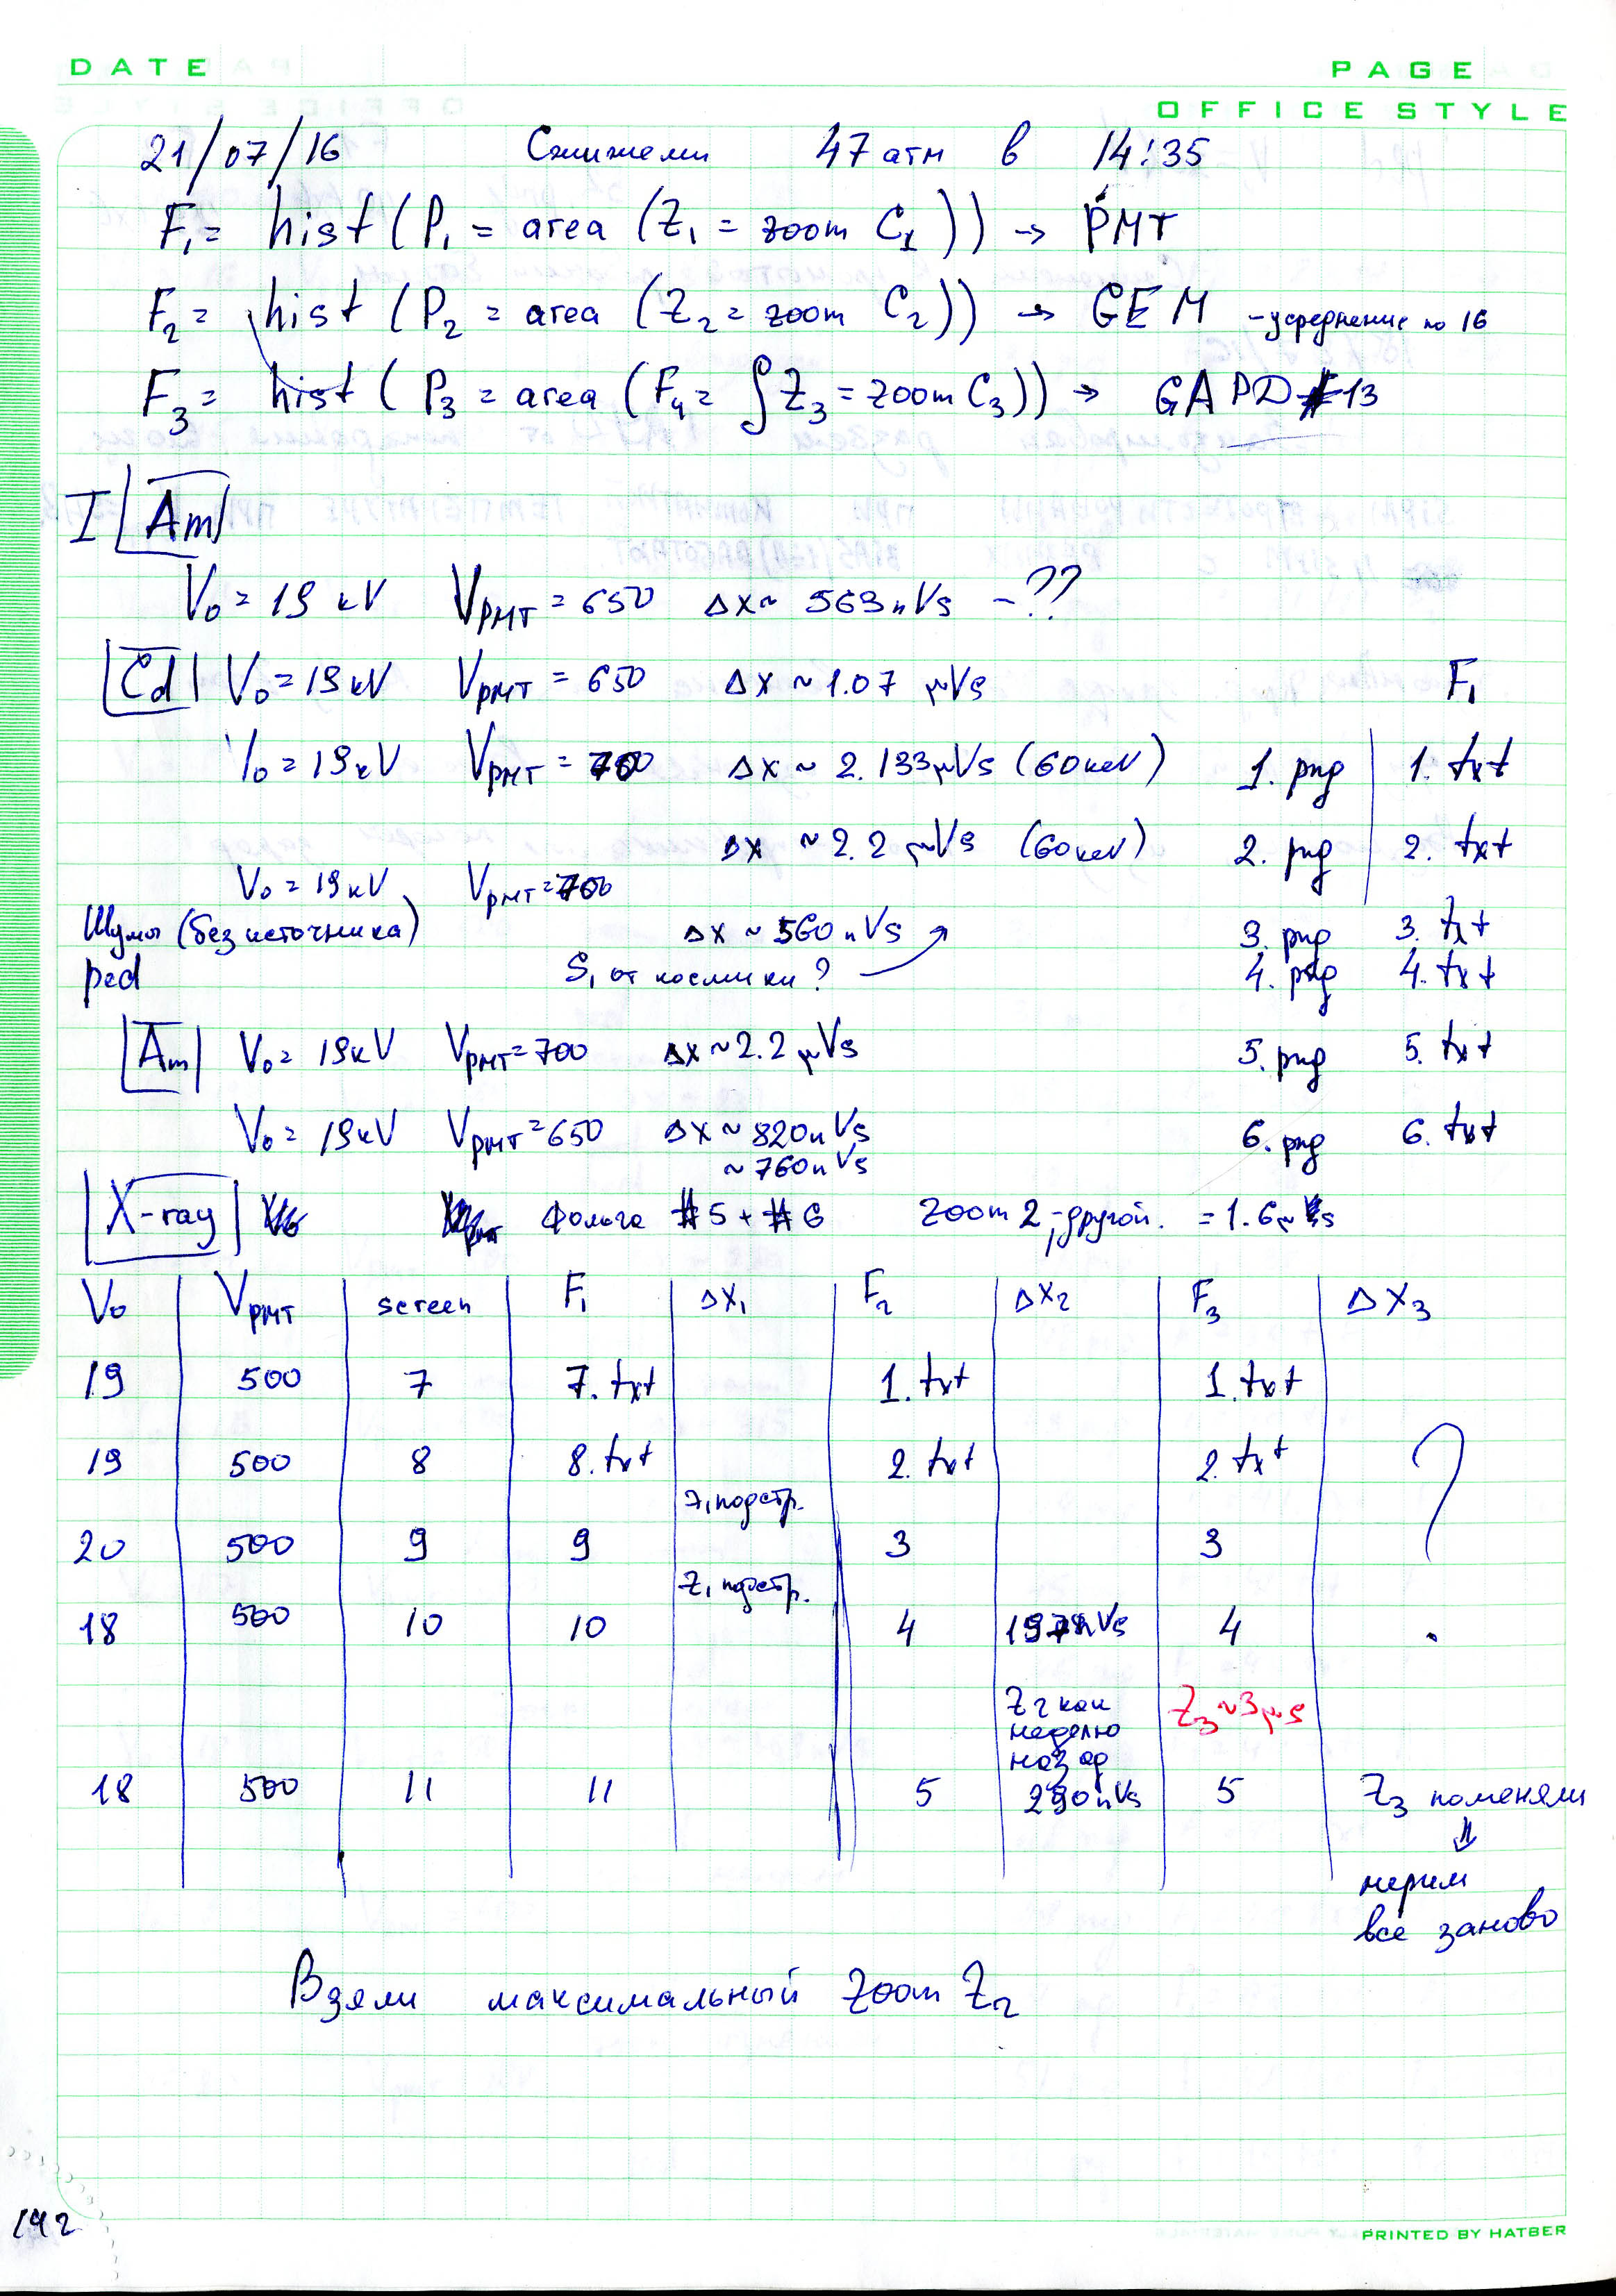 DATE
PAGE
OFFICE STYLE
21/07/16 Сжижели 47 атм в 14:35
F₁ = hist (P₁ = area (Z₁ = zoom C₁)) → PMT
F₂ = hist (P₂ = area (Z₂ = zoom C₂)) → GEM - усреднение по 16
F₃ = hist (P₃ = area (F₄ = ∫Z₃ = zoom C₃)) → GAPD #13
I Am
V₀ = 19 kV V_PMT = 650 Δx ~ 563 nVs - ??
Cd V₀ = 19 kV V_PMT = 650 Δx ~ 1.07 μVs F₁
V₀ = 19 kV V_PMT = 700 Δx ~ 2.133 μVs (60 keV) 1. png 1. txt
Δx ~ 2.2 μVs (60 keV) 2. png 2. txt
V₀ = 19 kV V_PMT = 700
Шумы (без источника) Δx ~ 560 nVs 3. png 3. txt
ped S₁ от космики? 4. png 4. txt
Am V₀ = 19 kV V_PMT = 700 Δx ~ 2.2 μVs 5. png 5. txt
V₀ = 19 kV V_PMT = 650 Δx ~ 820 nVs 6. png 6. txt
~ 760 nVs
X-ray фольга #5 + #6 Zoom 2, - другой. = 1.6
V₀ V_PMT screen F₁ Δx₁ F₂ Δx₂ F₃ Δx₃
19 500 7 7. txt 1. txt 1. txt
19 500 8 8. txt 2. txt 2. txt ?
Z₁ подстр.
20 500 9 9 3 3
Z₁ подстр.
18 500 10 10 4 nVs 4
Z₂ как Z₃ ~ 3 μs
неделю
назад
18 500 11 11 5 290 nVs 5 Z₃ поменяли
⇓
мерим
все заново
Взяли максимальный Zoom Z₂
142
PRINTED BY HATBER